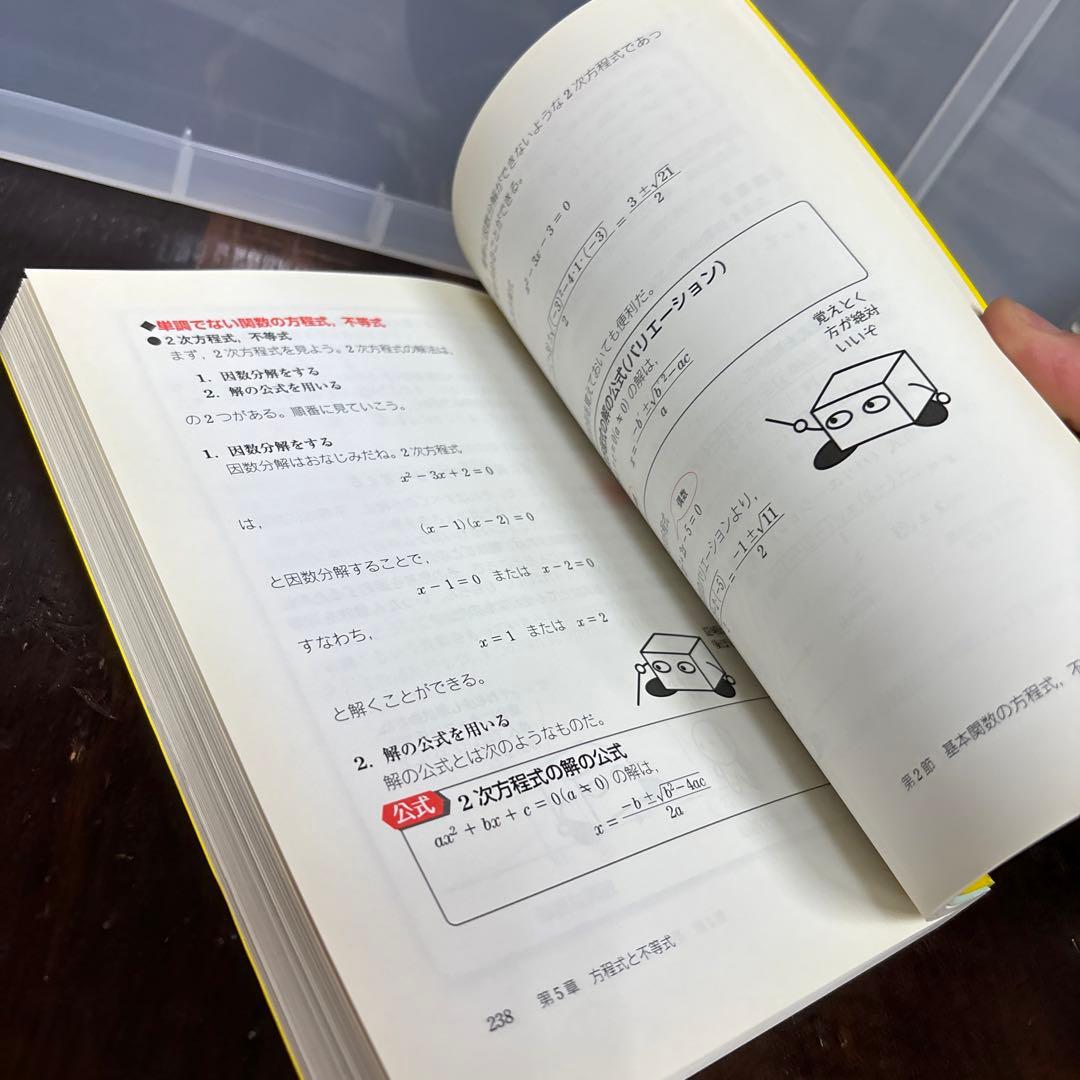 ◆単調でない関数の方程式，不等式
●2次方程式，不等式
まず，2次方程式を見よう。2次方程式の解法は，
1. 因数分解をする
2. 解の公式を用いる
の2つがある。順番に見ていこう。
1. 因数分解をする
因数分解はおなじみだね。2次方程式
x² − 3x + 2 = 0
は，
(x − 1)(x − 2) = 0
と因数分解することで，
x − 1 = 0 または x − 2 = 0
すなわち，
x = 1 または x = 2
と解くことができる。
2. 解の公式を用いる
解の公式とは次のようなものだ。
公式 2次方程式の解の公式
ax² + bx + c = 0 (a ≒ 0) の解は，
x = (−b ± √(b² − 4ac)) / 2a
238 第5章 方程式と不等式
因数分解ができないような2次方程式であっ
ことができる。
x² − 3x − 3 = 0
(−3)² − 4·1·(−3) = (3 ± √21) / 2
覚えておいても便利だ。
の解の公式(バリエーション)
= 0 (a ≒ 0) の解は，
x = (−b′ ± √(b′² − ac)) / a
覚えとく
方が絶対
いいぞ
偶数
− 5 = 0
バリエーションより，
= (−1 ± √11) / 2
第2節 基本関数の方程式，不